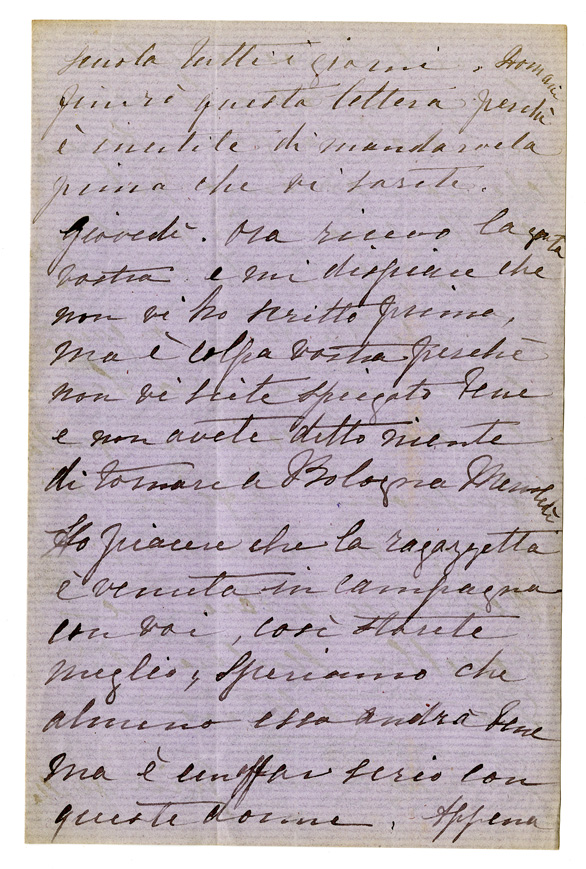 scuola tutti i giorni. Domani
finirò questa lettera perchè
è inutile di mandarvela
prima che vi sarete.
Giovedì. Ora ricevo la grata
vostra e mi dispiace che
non vi ho scritto prima,
ma è colpa vostra perchè
non vi siete spiegato bene
e non avete detto niente
di tornare a Bologna Mercoledì
Ho piacere che la ragazzetta
è venuta in campagna
con voi, così starete
meglio, speriamo che
almeno essa andrà bene
ma è un affar serio con
queste donne. Appena